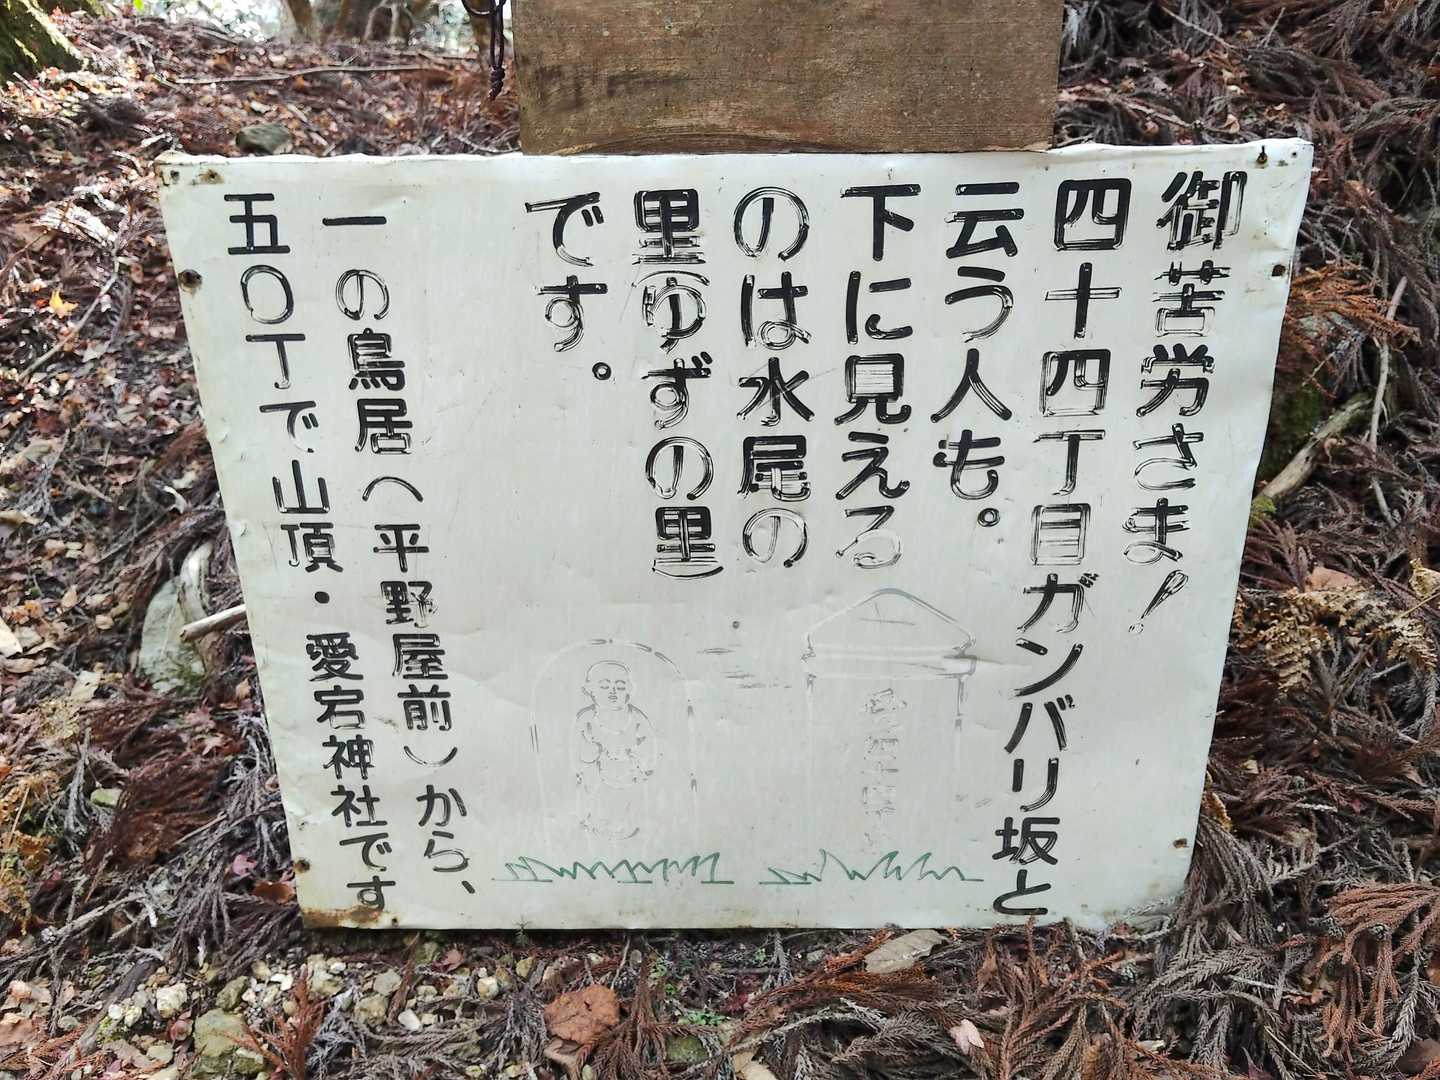 御苦労さま!
四十四丁目ガンバリ坂と
云う人も。
下に見える
のは水尾の
里(ゆずの里)
です。
一の鳥居(平野屋前)から、
五〇丁で山頂・愛宕神社です